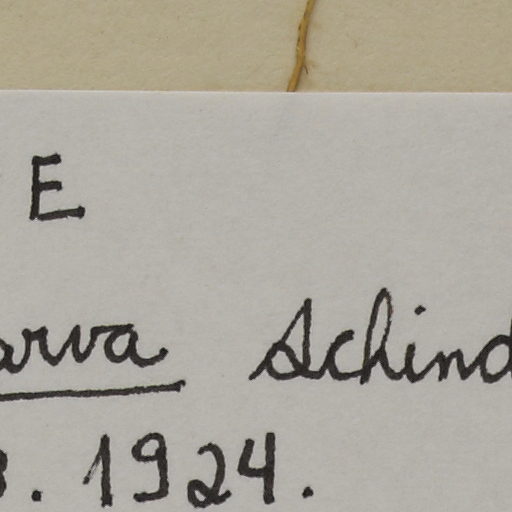 E
arva Schind
. 1924.